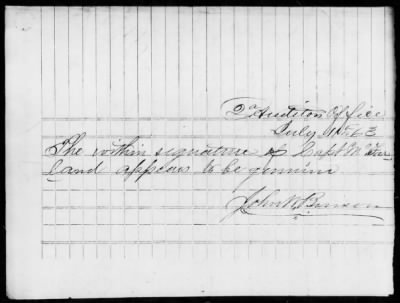 2d Auditors Office
July 1863
The within signature of Capt
land appears to be genuine
John Benson